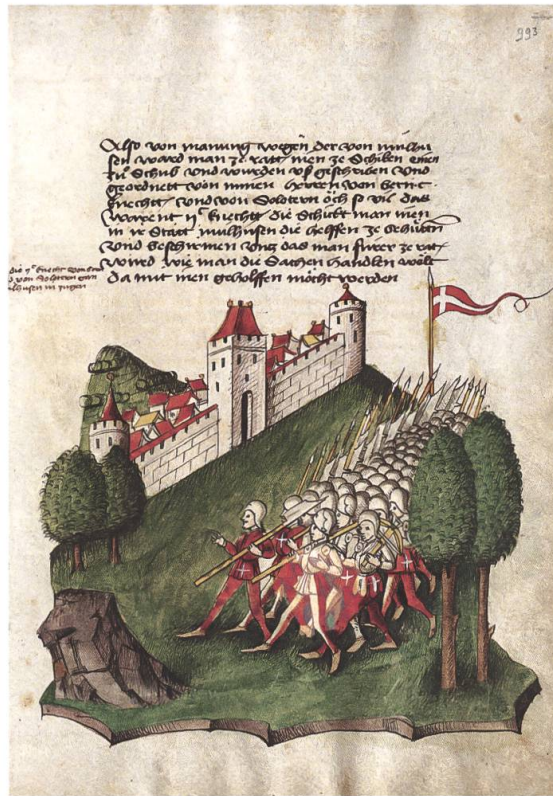 993
Also von manung wegen der von mülhu
sen ward man ze ratt inen ze schiken einen
zů schub und wurden uf geschriben und
geordnett von minen herren von bern .c.
knecht und von Solotern öch so vil das
warent ijc knecht die schikt man inen
in ir Statt mulhusen die helffen ze behütten
und beschirmen untz das man fürer ze ratt
wurd wie man die sachen handlen wölt
da mit inen geholffen möcht werden
die ijc knecht von
von Solotern gan
mulhusen in zugen